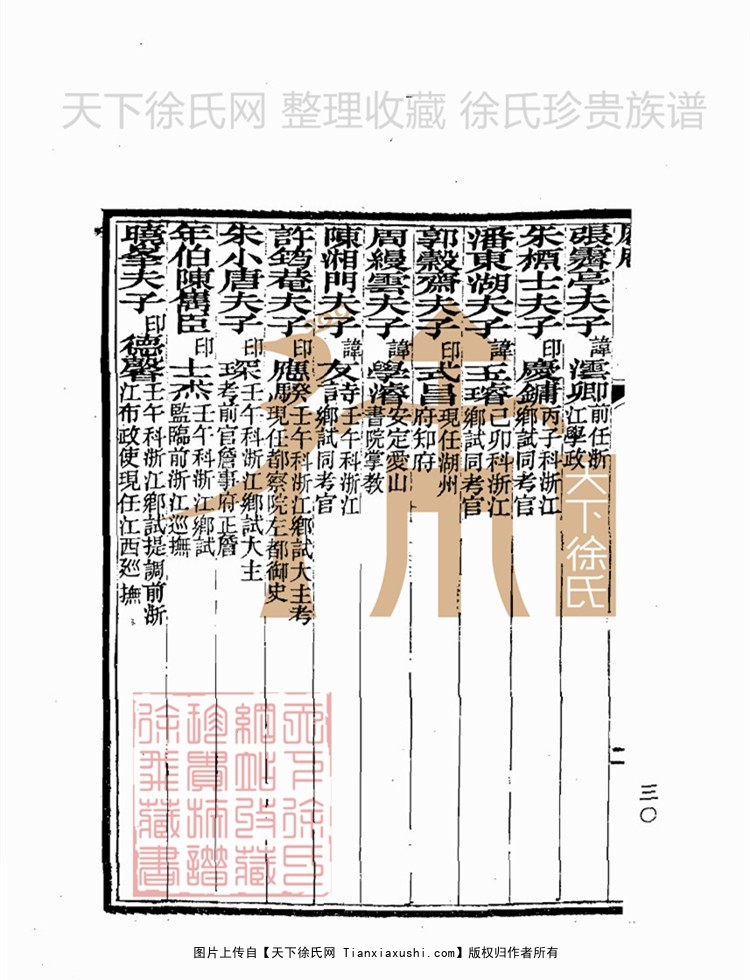 天下徐氏网 整理收藏 徐氏珍贵族谱
張霽亭夫子 諱澐卿 前任浙江學政
朱標士夫子 印慶鏞 丙子科浙江鄉試同考官
潘東湖夫子 諱玉璿 己卯科浙江鄉試同考官
郭穀齋夫子 印式昌 現任湖州府知府
周縵雲夫子 諱學濬 安定愛山書院掌教
陳湘門夫子 諱友詩 壬午科浙江鄉試同考官
許筠菴夫子 印應騤 壬午科浙江鄉試大主考現任都察院左都御史
朱小唐夫子 印琛 壬午科浙江鄉試大主考前官詹事府正詹
年伯陳雋臣 印士杰 壬午科浙江鄉試監臨前浙江巡撫
曉峯夫子 印德馨 壬午科浙江鄉試提調前浙江布政使現任江西廵撫
二
三〇
天下徐氏
天下徐氏
網站收藏
珍貴族譜
徐飛藏書
图片上传自【天下徐氏网 Tianxiaxushi.com】版权归作者所有